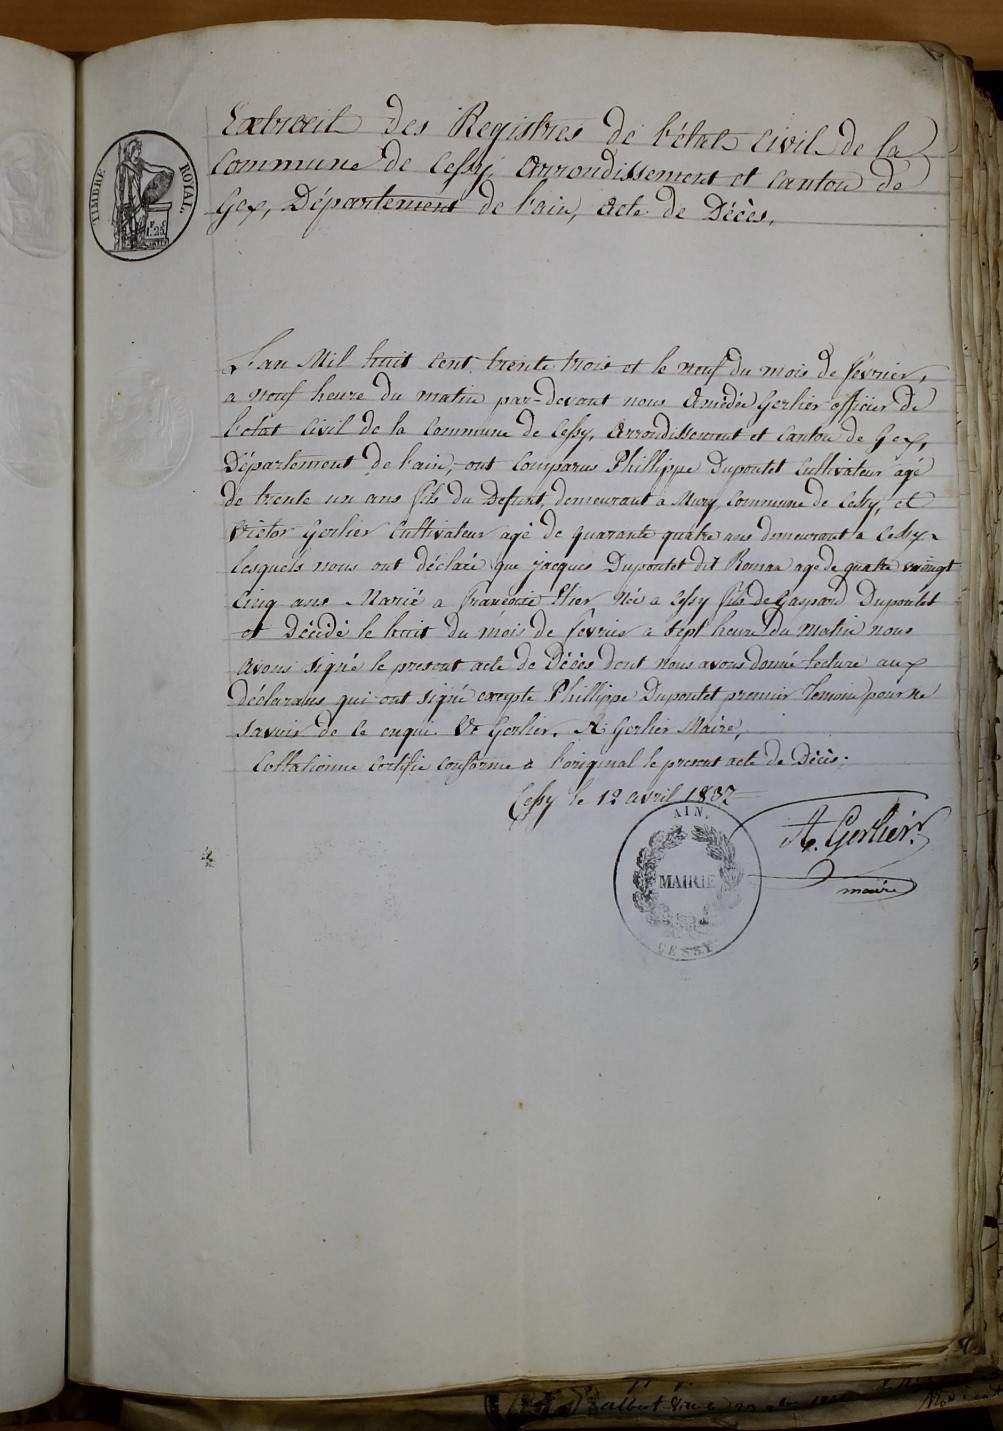 TIMBRE ROYAL.
1F 25c
Extrait des Registres de l'état Civil de la
Commune de Cessy, Arrondissement et Canton de
Gex, Département de l'ain, Acte de Décès,
L'an Mil huit Cent trente trois et le neuf du mois de février,
a neuf heure du matin par-devant nous Amédée Gerlier officier de
l'etat Civil de la Commune de Cessy, Arrondissement et Canton de Gex,
Département de l'ain, ont Comparus Phillippe Dupontet Cultivateur agé
de trente un ans fils du Defunt, demeurant a Mury, Commune de Cessy, et
Victor Gerlier Cultivateur agé de quarante quatre ans demeurant a Cessy
lesquels nous ont déclaré que jacques Dupontet dit Roman agé de quatre vingt
Cinq ans Marié a françoise Née a Cessy fils de Gaspard Dupontet
et Décédé le huit du mois de fevrier a sept heure du matin nous
avons signé le present acte de Décès dont nous avons donné lecture aux
déclarans qui ont signé excepte Phillippe Dupontet premier temoin pour ne
savoir de ce enquis Vr Gerlier, A. Gerlier Maire,
Collationne Certifie Conforme à l'original le present acte de Décès;
Cessy le 12 avril 1837
A. Gerlier
maire
AIN.
MAIRIE
CESSY